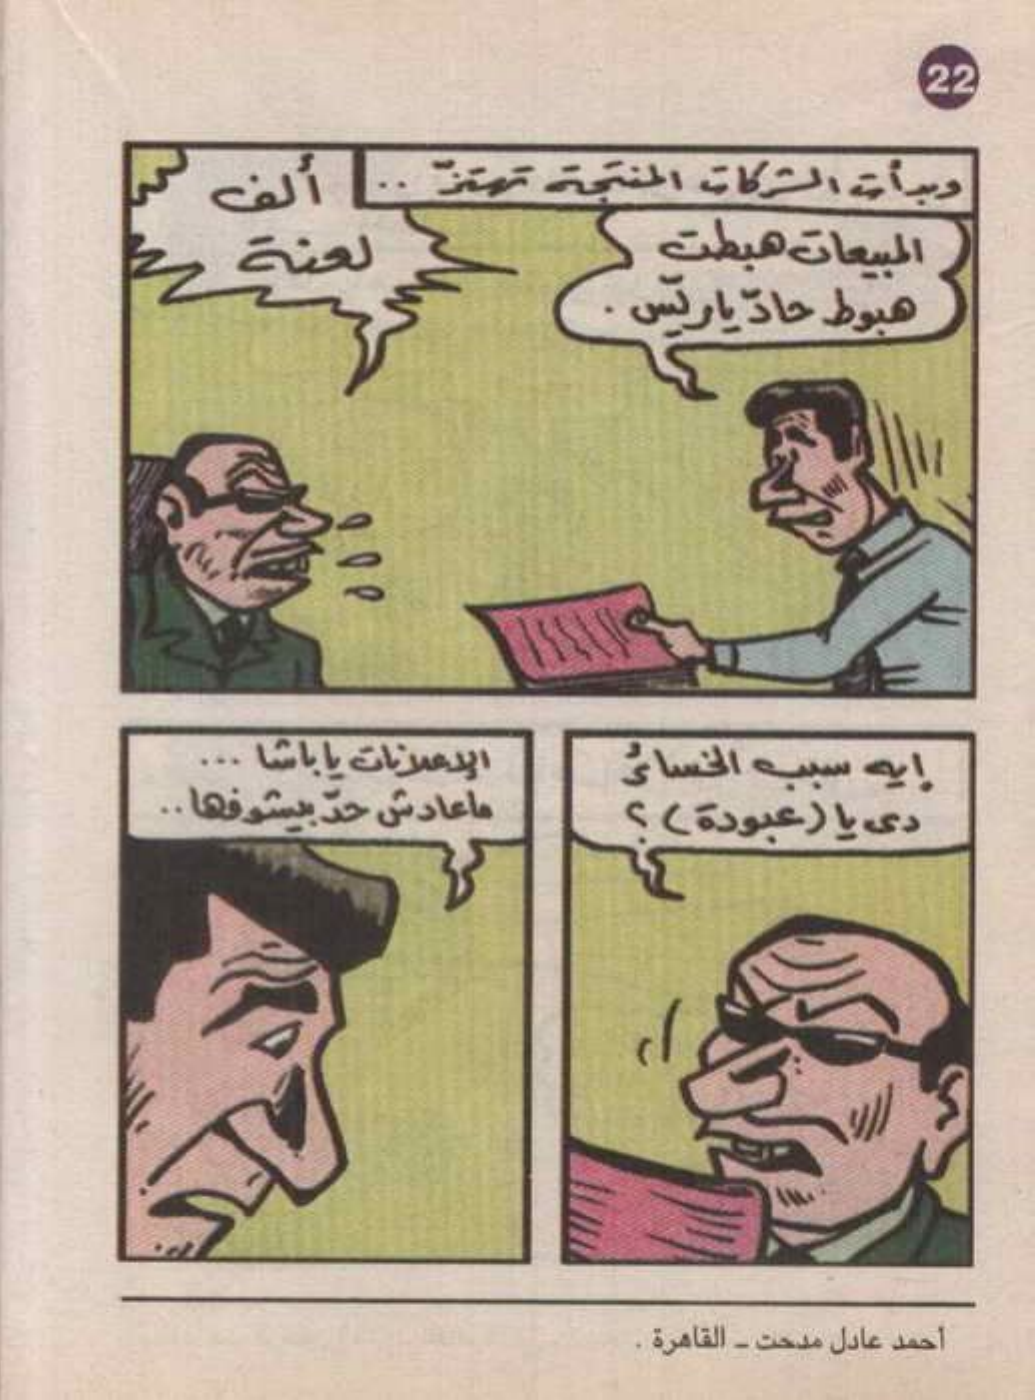 22
وبدأت الشركات المنتجة تهتزّ ..
المبيعات هبطت
هبوط حادّ يا ريّس .
ألف
لعنة
إيه سبب الخسائر
دى يا (عبودة) ؟
الإعلانات يا باشا ...
ماعادش حدّ بيشوفها ..
أحمد عادل مدحت ـ القاهرة .